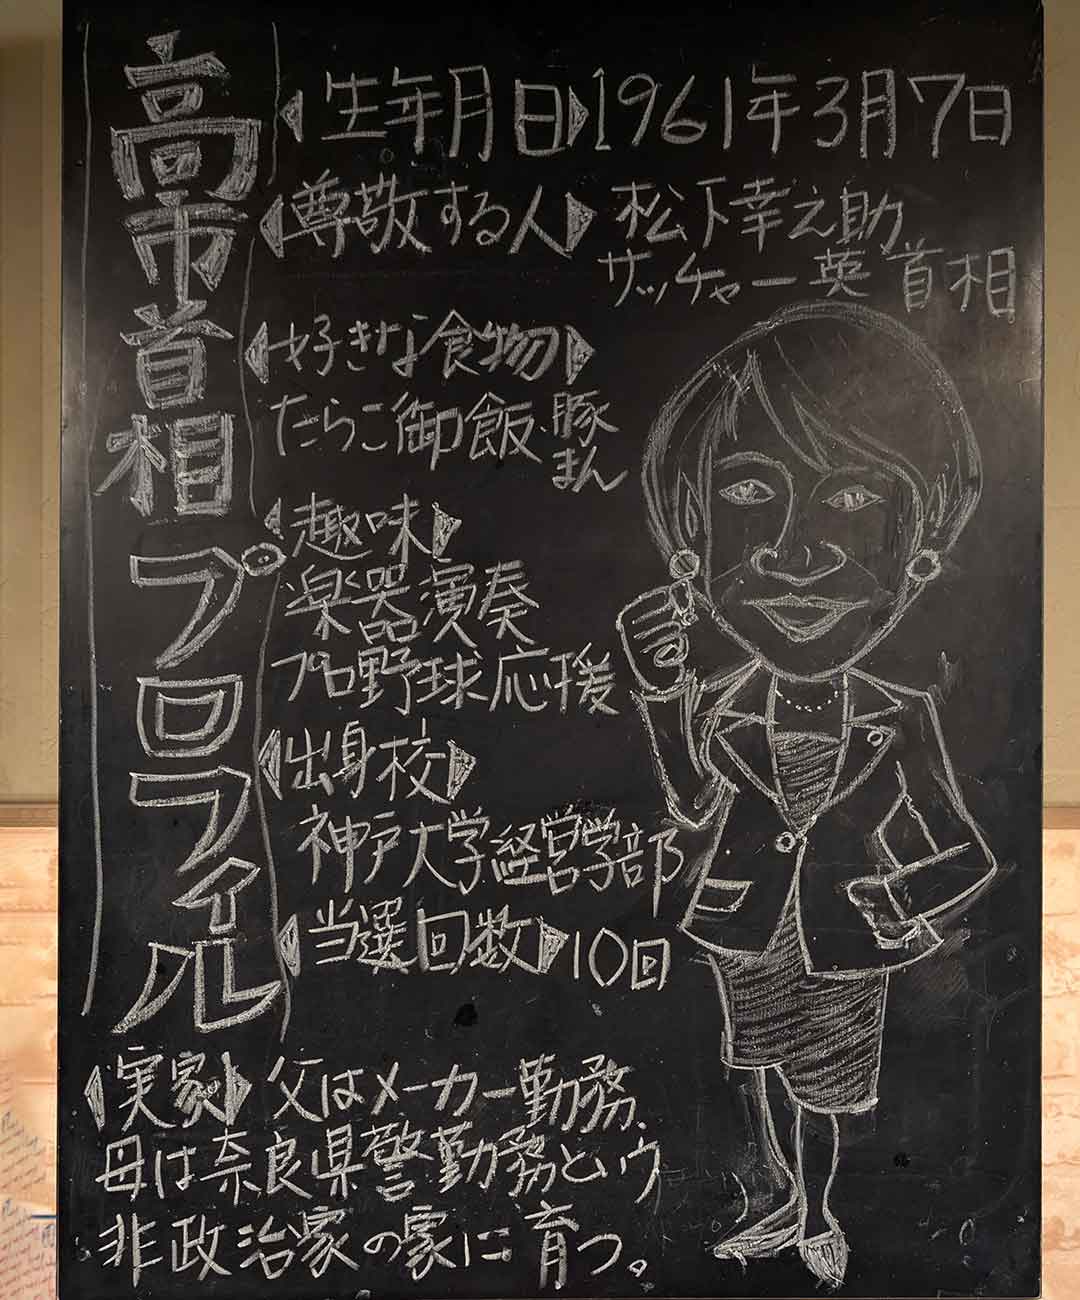 高市首相プロフィル
《生年月日》1961年3月7日
《尊敬する人》松下幸之助
サッチャー英首相
《好きな食物》
たらこ御飯・豚まん
《趣味》
楽器演奏
プロ野球応援
《出身校》
神戸大学経営学部
《当選回数》10回
《実家》父はメーカー勤務、
母は奈良県警勤務という
非政治家の家に育つ。